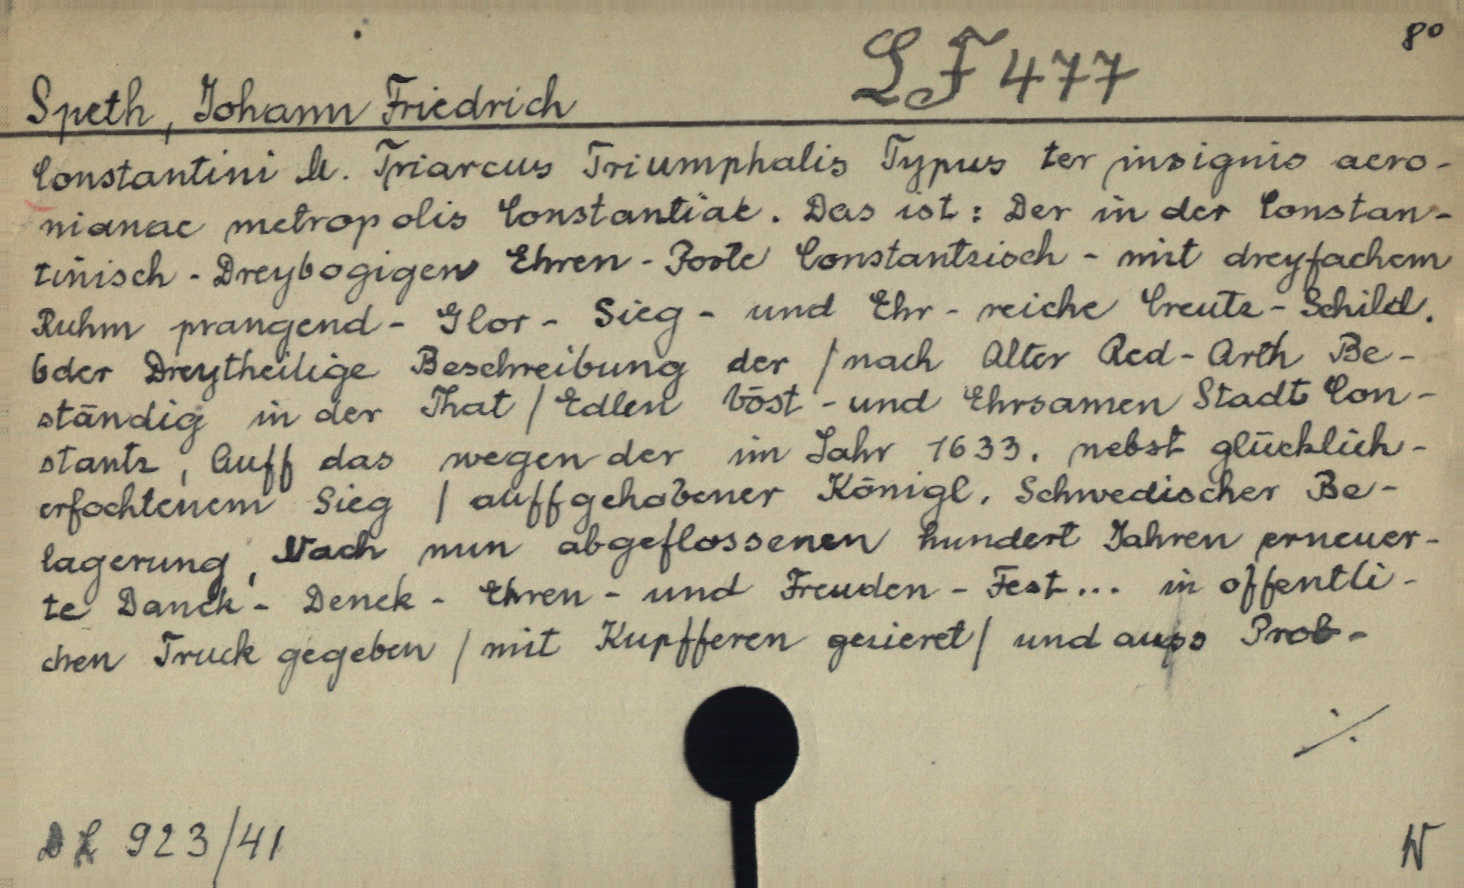 8°
LF 477
Speth, Johann Friedrich
Constantini M. Triarcus Triumphalis Typus ter insignis acro-
nianae metropolis Constantiae. Das ist: Der in der Constan-
tinisch-Dreybogigen Ehren-Porte Constantzisch-mit dreyfachem
Ruhm prangend-Glor-Sieg-und Ehr-reiche Creutz-Schild.
Oder Dreytheilige Beschreibung der / nach Alter Red-Arth Be-
ständig in der That / Edlen Vöst-und Ehrsamen Stadt Con-
stantz, Auff das wegen der im Jahr 1633. nebst glücklich-
erfochtenem Sieg / auffgehobener Königl. Schwedischer Be-
lagerung, Nach nun abgeflossenen hundert Jahren erneuer-
te Danck-Denck-Ehren-und Freuden-Fest... in offentli-
chen Truck gegeben / mit Kupfferen gezieret / und auss Prob-
./.
923/41
W